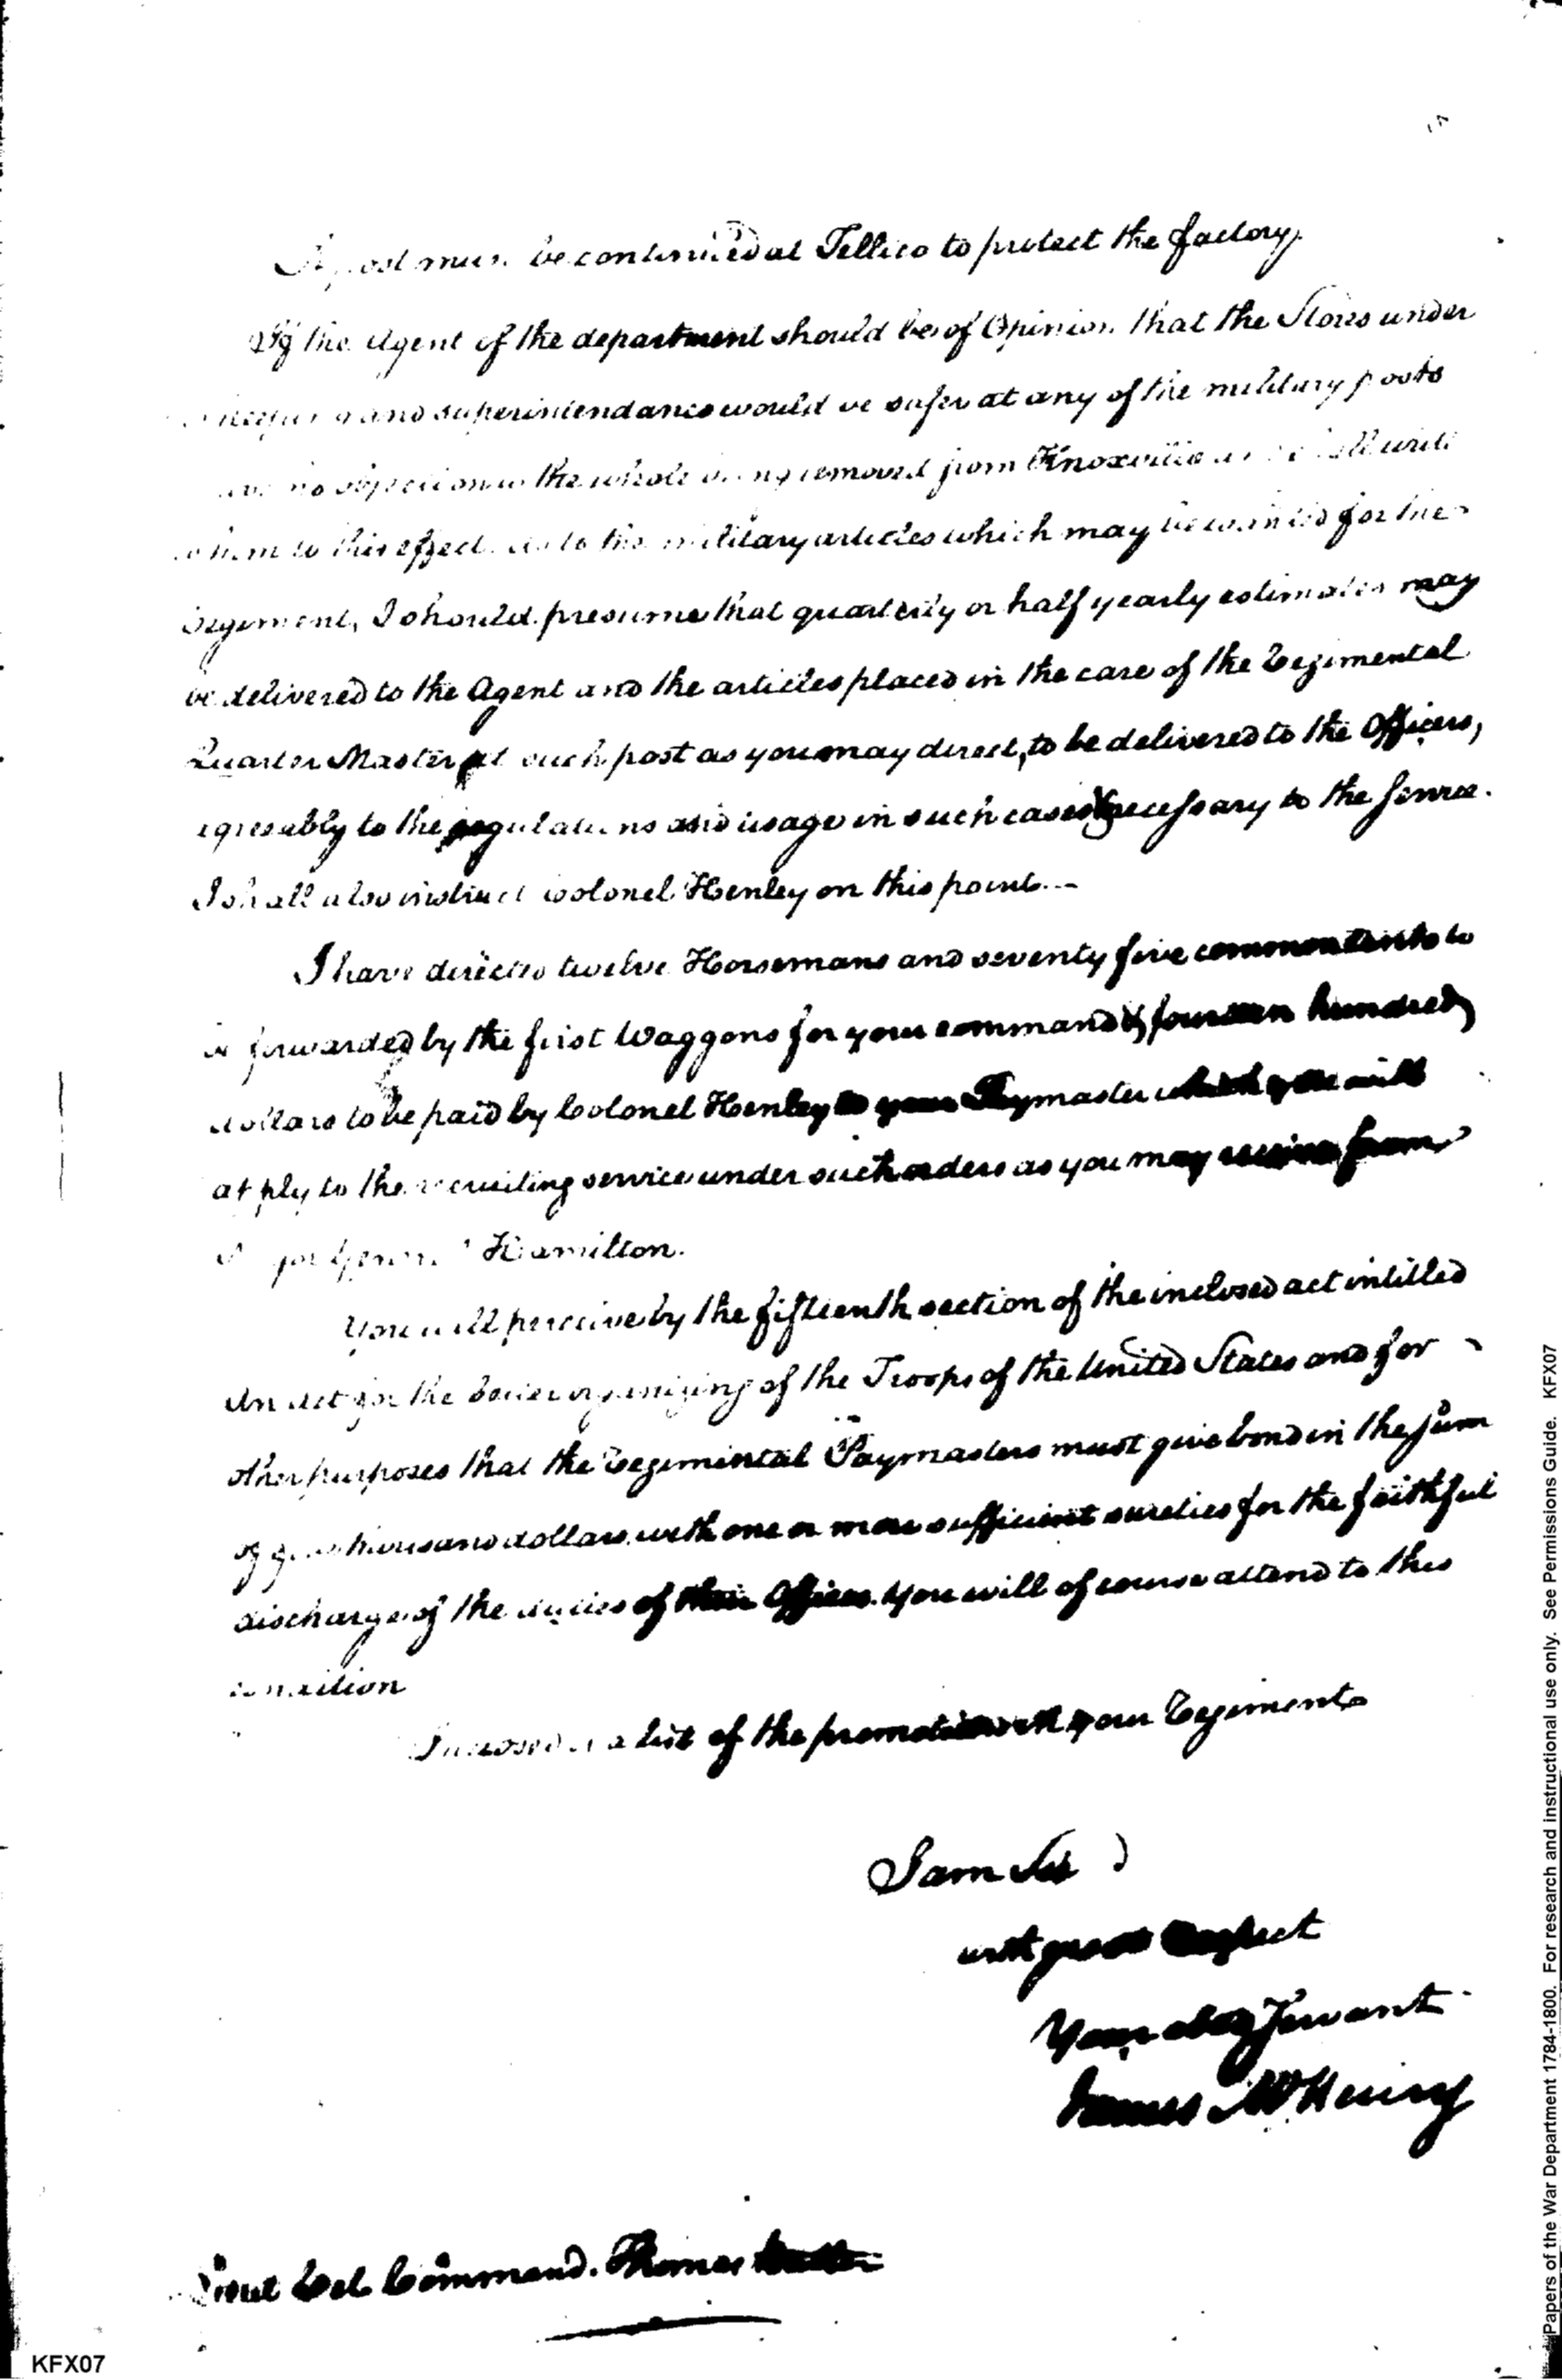 A post must be continued at Tellico to protect the factory.
If the Agent of the department should be of Opinion that the Stores under
and superintendance would be safer at any of the military posts
no objection to the whole being removed from Knoxville
him to this effect. As to the military articles which may be wanted for the
regiment, I should presume that quarterly or half yearly estimates may
be delivered to the Agent and the articles placed in the care of the Regimental
Quarter Master at such post as you may direct, to be delivered to the Officers,
agreeably to the regulations and usage in such cases necessary to the service.
I shall also instruct Colonel Henley on this point.—
I have directed twelve Horsemans and seventy five common tents to
be forwarded by the first Waggons for your command & fourteen hundred
dollars to be paid by Colonel Henley to your Paymaster which you will
apply to the recruiting service under such orders as you may receive from
Major General Hamilton.
You will perceive by the fifteenth section of the inclosed act intitled
An act for the better organizing of the Troops of the United States and for
other purposes that the Regimental Paymasters must give bond in the sum
of thousand dollars with one or more sufficient sureties for the faithful
discharge of the duties of their Offices. You will of course attend to this
condition
Inclosed is a list of the promotions in your Regiment
I am Sir
with great Respect
Your obed Servant
James McHenry
Lieut Col. Command. Thomas Butler
KFX07
Papers of the War Department 1784-1800. For research and instructional use only. See Permissions Guide. KFX07